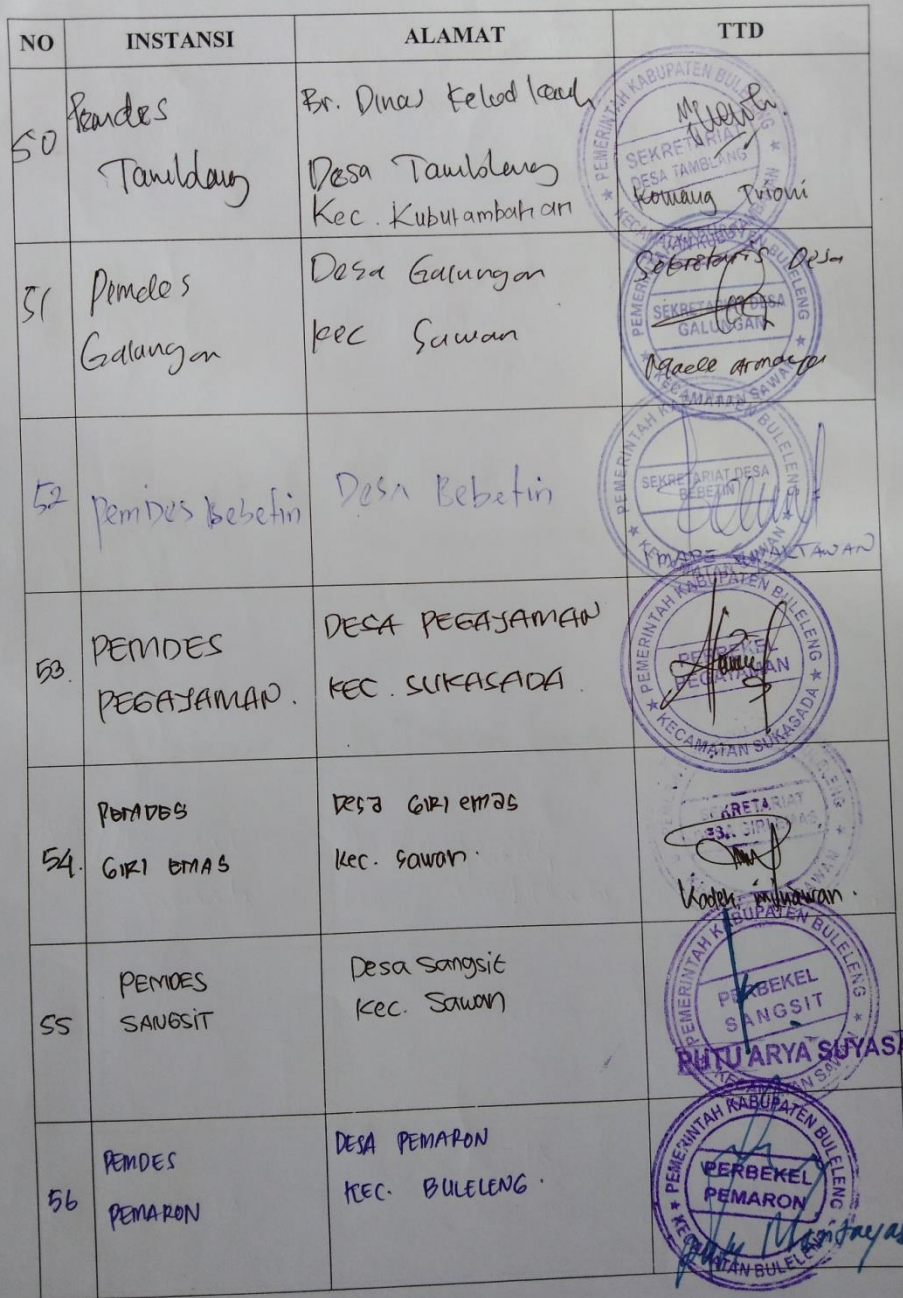 NO INSTANSI ALAMAT TTD
50 Pemdes Tamblang
Br. Dinas Kelod kauh
Desa Tamblang
Kec. Kubutambahan
PEMERINTAH KABUPATEN BULELENG
SEKRETARIAT
DESA TAMBLANG
Komang Prioni
51 Pemdes
Galungan
Desa Galungan
Kec Sawan
Sekretaris Desa
PEMERINTAH KABUPATEN BULELENG
SEKRETARIAT DESA
GALUNGAN
KECAMATAN SAWAN
52 PemDes Bebetin
Desa Bebetin
PEMERINTAH KABUPATEN BULELENG
SEKRETARIAT DESA
BEBETIN
KECAMATAN SAWAN
53. PEMDES
PEGAYAMAN.
DESA PEGAYAMAN
KEC. SUKASADA.
PEMERINTAH KABUPATEN BULELENG
PERBEKEL
PEGAYAMAN
KECAMATAN SUKASADA
54. PEMDES
GIRI EMAS
Desa GIRI emas
Kec. Sawan.
SEKRETARIAT
DESA GIRI EMAS
Kadek
55 PEMDES
SANGSIT
Desa Sangsit
Kec. Sawan
PEMERINTAH KABUPATEN BULELENG
PERBEKEL
SANGSIT
PUTU ARYA SUYASA
KECAMATAN SAWAN
56 PEMDES
PEMARON
DESA PEMARON
KEC. BULELENG.
PEMERINTAH KABUPATEN BULELENG
PERBEKEL
PEMARON
KECAMATAN BULELENG